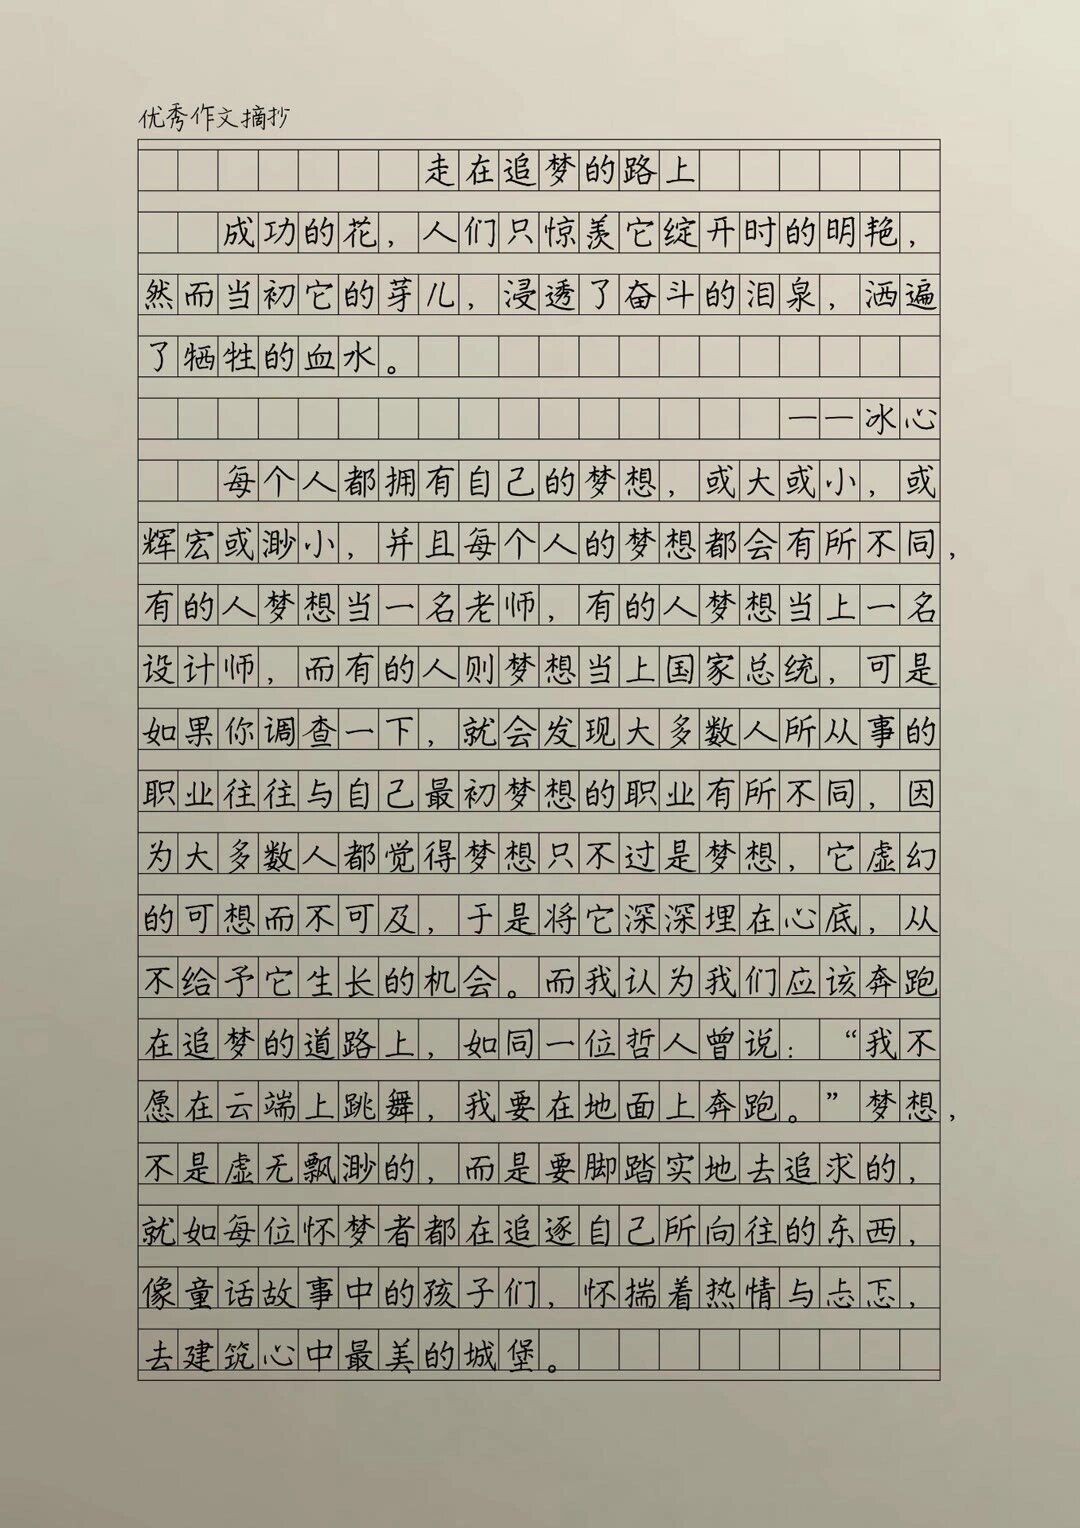 优秀作文摘抄
走在追梦的路上
成功的花，人们只惊羡它绽开时的明艳，
然而当初它的芽儿，浸透了奋斗的泪泉，洒遍
了牺牲的血水。
——冰心
每个人都拥有自己的梦想，或大或小，或
辉宏或渺小，并且每个人的梦想都会有所不同，
有的人梦想当一名老师，有的人梦想当上一名
设计师，而有的人则梦想当上国家总统，可是
如果你调查一下，就会发现大多数人所从事的
职业往往与自己最初梦想的职业有所不同，因
为大多数人都觉得梦想只不过是梦想，它虚幻
的可想而不可及，于是将它深深埋在心底，从
不给予它生长的机会。而我认为我们应该奔跑
在追梦的道路上，如同一位哲人曾说：“我不
愿在云端上跳舞，我要在地面上奔跑。”梦想，
不是虚无飘渺的，而是要脚踏实地去追求的，
就如每位怀梦者都在追逐自己所向往的东西，
像童话故事中的孩子们，怀揣着热情与忐忑，
去建筑心中最美的城堡。